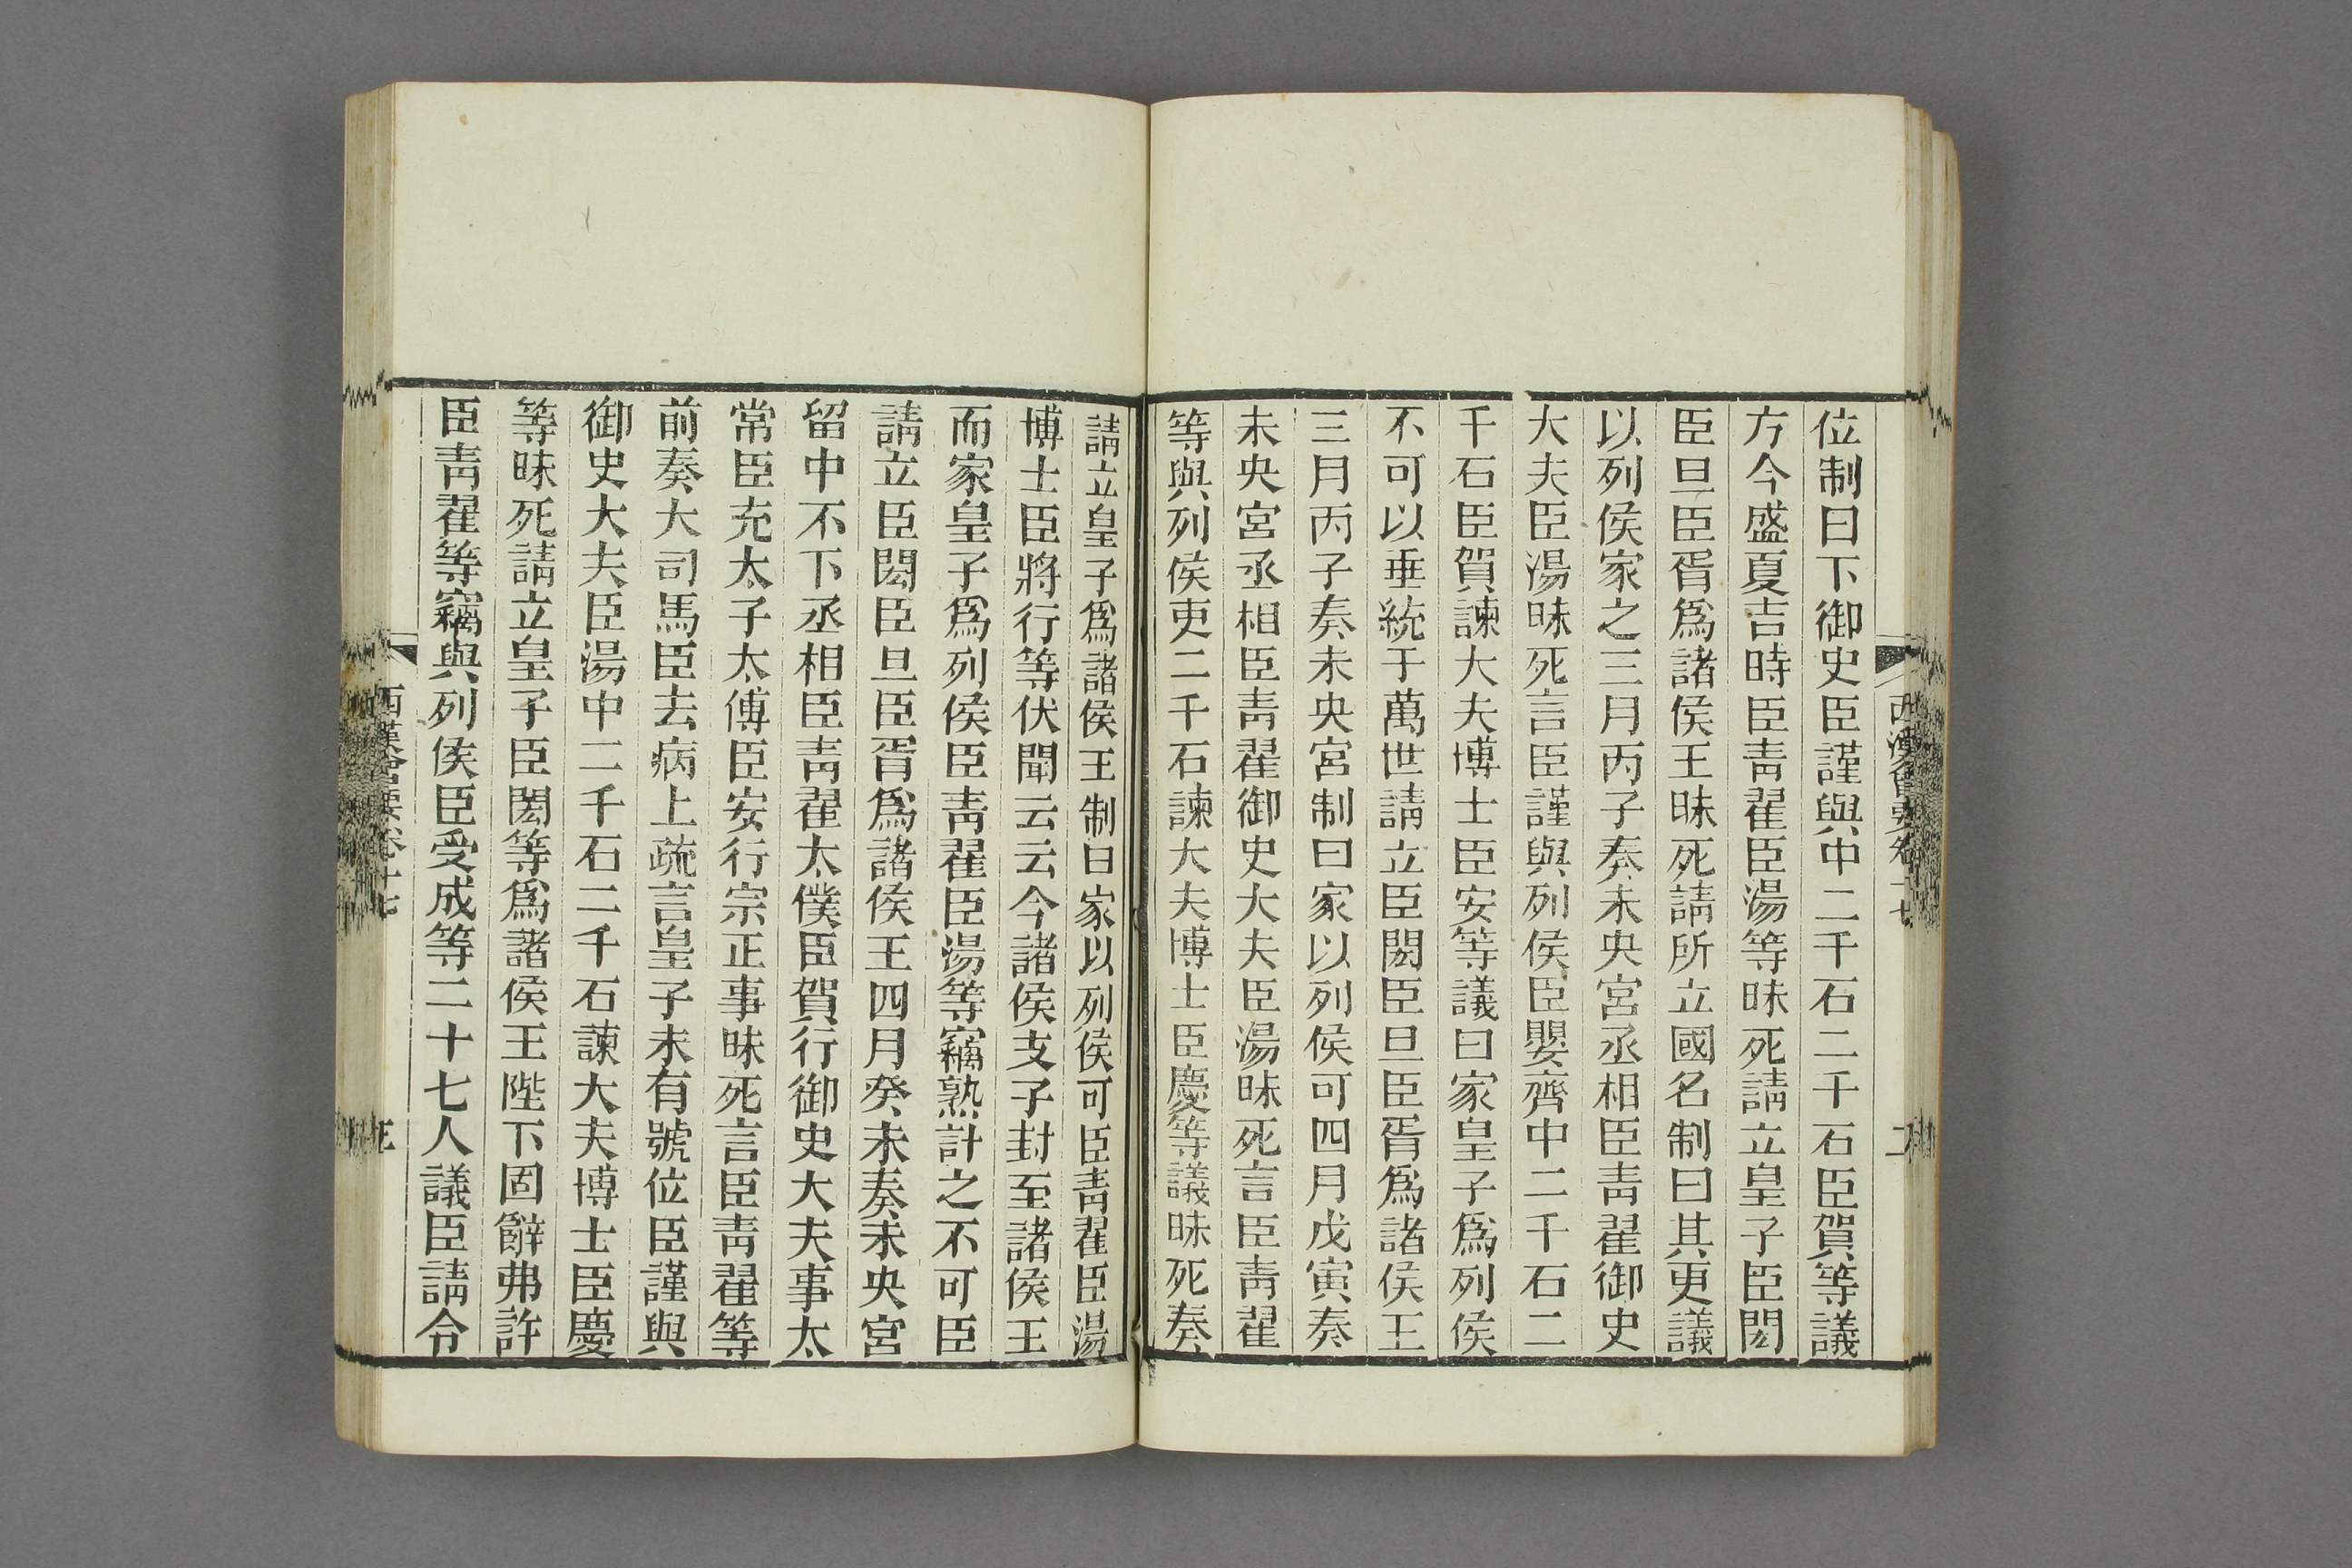 西漢會要卷十七
二
位制曰下御史臣謹與中二千石二千石臣賀等議
方今盛夏吉時臣靑翟臣湯等昧死請立皇子臣閎
臣旦臣胥爲諸侯王昧死請所立國名制曰其更議
以列侯家之三月丙子奏未央宮丞相臣靑翟御史
大夫臣湯昧死言臣謹與列侯臣嬰齊中二千石二
千石臣賀諫大夫博士臣安等議曰家皇子爲列侯
不可以垂統于萬世請立臣閎臣旦臣胥爲諸侯王
三月丙子奏未央宮制曰家以列侯可四月戊寅奏
未央宮丞相臣靑翟御史大夫臣湯昧死言臣靑翟
等與列侯吏二千石諫大夫博士臣慶等議昧死奏
請立皇子爲諸侯王制曰家以列侯可臣靑翟臣湯
博士臣將行等伏聞云云今諸侯支子封至諸侯王
而家皇子爲列侯臣靑翟臣湯等竊熟計之不可臣
請立臣閎臣旦臣胥爲諸侯王四月癸未奏未央宮
留中不下丞相臣靑翟太僕臣賀行御史大夫事太
常臣充太子太傅臣安行宗正事昧死言臣靑翟等
前奏大司馬臣去病上疏言皇子未有號位臣謹與
御史大夫臣湯中二千石二千石諫大夫博士臣慶
等昧死請立皇子臣閎等爲諸侯王陛下固辭弗許
臣靑翟等竊與列侯臣受成等二十七人議臣請令
西漢會要卷十七
三